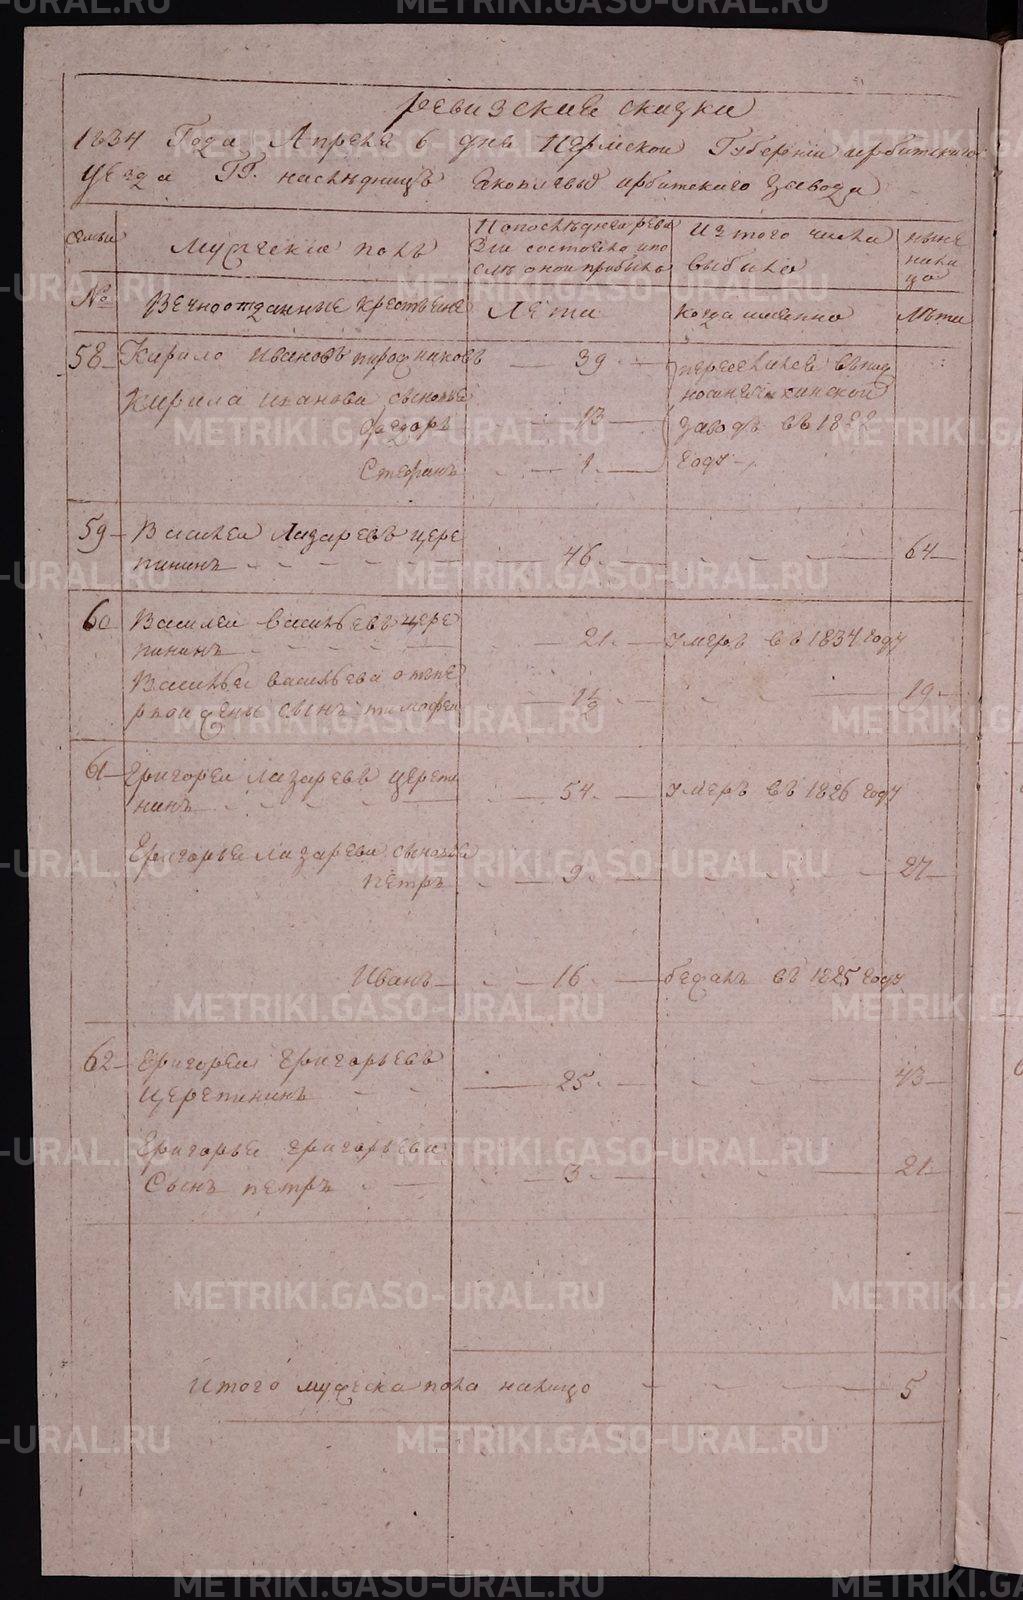 ревизские сказки
1834 Года Апреля 6 дня Пермской Губернии ирбитского
уезда ГГ. наследницъ Яковлевы ирбитского завода
семьи
мужеска полъ
По последней реви
зии состояло и по
слѣ оной прибыло
Из того числа
выбыло
ныне
нали
цо
№
Вечноотданные крестьяне
Лета
когда именно
Лѣта
58
Кирило Ивановъ пирожниковъ
39
переселился въ
Кирила иванова сыновья
Федоръ
13
заводъ въ 1822
Степанъ
1
году
59
Василеи Лазаревъ щере
пининъ
46
64
60
Василеи васильевъ щере
пининъ
21
умеръ въ 1834 году
Василья васильева отпе
рвои жены сынъ тимофеи
1½
19
61
Григореи лазаревъ щерепи
нинъ
54
умеръ въ 1826 году
Григорья лазарева сыновья
петръ
9
27
Иванъ
16
бежалъ въ 1825 году
62
Григореи григорьевъ
щерепининъ
25
43
Григорья григорьева
Сынъ петръ
3
21
Итого мужеска пола налицо
5
METRIKI.GASO-URAL.RU